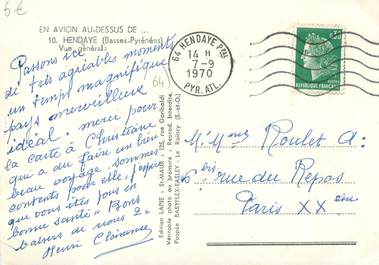 6€
EN AVION AU-DESSUS DE ...
10. HENDAYE (Basses-Pyrénées)
Vue générale
64
Passons ici
de très agréables moments
un temps magnifique
pays merveilleux
idéal. merci pour
la carte à Christiane
qui a du faire un bien
beau voyage. sommes
contents pour elle. J'espère
que vous êtes tous en
bonne santé. Bons
baisers de nous 2.
Henri
Edition LAPIE - St-MAUR - 125, rue Garibaldi
Véritable photo au bromure - Reprod. Interdite.
Le Raincy (S.-et-O.)
64 HENDAYE Pal
14 H
7-9
1970
PYR. ATL.
0,30
POSTES
REPUBLIQUE FRANÇAISE
Mr Mme Roulet
6 bis rue du Repos
Paris XX em